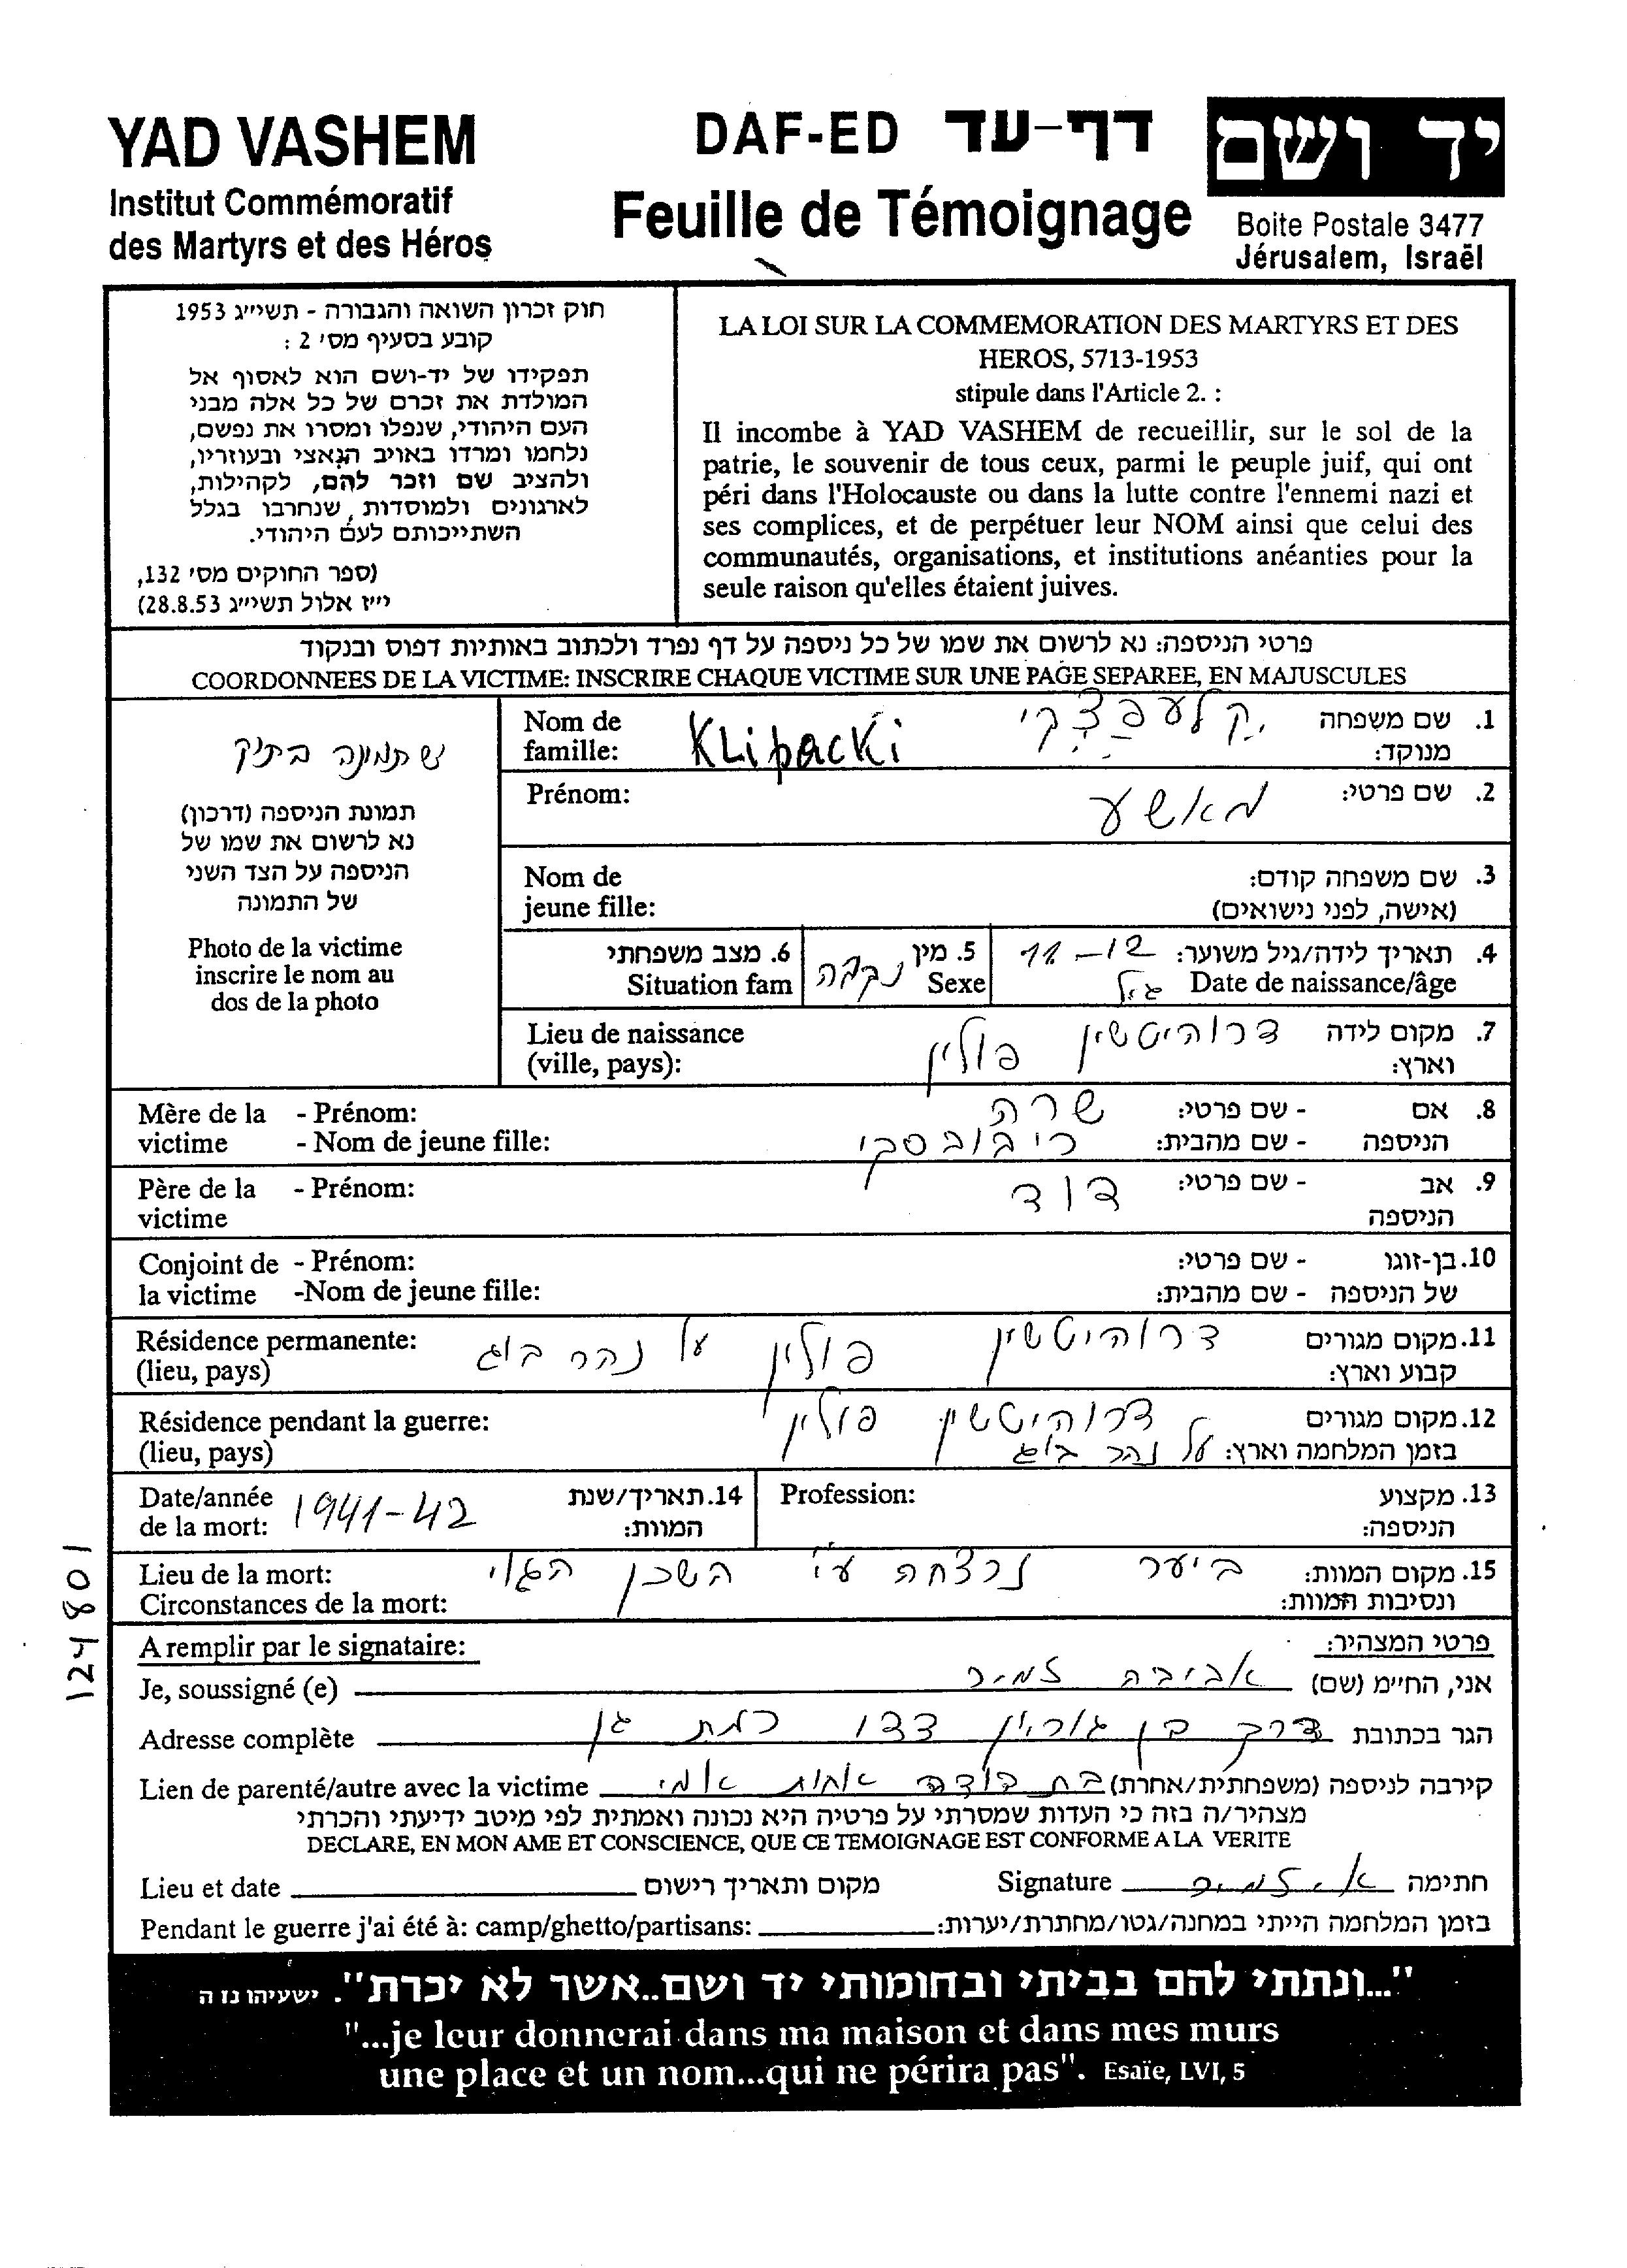 YAD VASHEM
Institut Commémoratif
des Martyrs et des Héros
DAF-ED דף-עד
Feuille de Témoignage
יד ושם
Boite Postale 3477
Jérusalem, Israël
חוק זכרון השואה והגבורה - תשי״ג 1953
קובע בסעיף מס׳ 2 :
תפקידו של יד-ושם הוא לאסוף אל
המולדת את זכרם של כל אלה מבני
העם היהודי, שנפלו ומסרו את נפשם,
נלחמו ומרדו באויב הנאצי ובעוזריו,
ולהציב שם וזכר להם, לקהילות,
לארגונים ולמוסדות, שנחרבו בגלל
השתייכותם לעם היהודי.
(ספר החוקים מס׳ 132,
י״ז אלול תשי״ג 28.8.53)
LA LOI SUR LA COMMEMORATION DES MARTYRS ET DES
HEROS, 5713-1953
stipule dans l'Article 2. :
Il incombe à YAD VASHEM de recueillir, sur le sol de la
patrie, le souvenir de tous ceux, parmi le peuple juif, qui ont
péri dans l'Holocauste ou dans la lutte contre l'ennemi nazi et
ses complices, et de perpétuer leur NOM ainsi que celui des
communautés, organisations, et institutions anéanties pour la
seule raison qu'elles étaient juives.
פרטי הניספה: נא לרשום את שמו של כל ניספה על דף נפרד ולכתוב באותיות דפוס ובנקוד
COORDONNEES DE LA VICTIME: INSCRIRE CHAQUE VICTIME SUR UNE PAGE SEPAREE, EN MAJUSCULES
תמונה בתיק
תמונת הניספה (דרכון)
נא לרשום את שמו של
הניספה על הצד השני
של התמונה
Photo de la victime
inscrire le nom au
dos de la photo
Nom de
famille: Klipacki קלעפצקי
1. שם משפחה
מנוקד:
Prénom: מאשע 2. שם פרטי:
Nom de
jeune fille:
3. שם משפחה קודם:
(אישה, לפני נישואים)
4. תאריך לידה/גיל משוער: 11-12
Date de naissance/âge גיל
5. מין נקבה
Sexe
6. מצב משפחתי
Situation fam
Lieu de naissance
(ville, pays):
דרוהיטשין פולין
7. מקום לידה
וארץ:
Mère de la - Prénom: שרה - שם פרטי: 8. אם
victime - Nom de jeune fille: ריבובסקי - שם מהבית: הניספה
Père de la - Prénom: דוד - שם פרטי: 9. אב
victime הניספה
Conjoint de - Prénom: - שם פרטי: 10. בן-זוגו
la victime -Nom de jeune fille: - שם מהבית: של הניספה
Résidence permanente:
(lieu, pays)
דרוהיטשין פולין על נהר בוג
11. מקום מגורים
קבוע וארץ:
Résidence pendant la guerre:
(lieu, pays)
דרוהיטשין פולין
על נהר בוג
12. מקום מגורים
בזמן המלחמה וארץ:
Date/année
de la mort: 1941-42
14. תאריך/שנת
המוות:
Profession:
13. מקצוע
הניספה:
Lieu de la mort:
Circonstances de la mort:
ביער נרצחה ע״י השכן הגוי
15. מקום המוות:
ונסיבות המוות:
124801
A remplir par le signataire: פרטי המצהיר:
Je, soussigné (e) אביבה זמיר אני, הח״מ (שם)
Adresse complète דרך בן גוריון 133 רמת גן הגר בכתובת
Lien de parenté/autre avec la victime בת דודה אחות אמי קירבה לניספה (משפחתית/אחרת)
מצהיר/ה בזה כי העדות שמסרתי על פרטיה היא נכונה ואמתית לפי מיטב ידיעתי והכרתי
DECLARE, EN MON AME ET CONSCIENCE, QUE CE TEMOIGNAGE EST CONFORME A LA VERITE
Lieu et date מקום ותאריך רישום Signature א. זמיר חתימה
Pendant le guerre j'ai été à: camp/ghetto/partisans: בזמן המלחמה הייתי במחנה/גטו/מחתרת/יערות:
"...ונתתי להם בביתי ובחומותי יד ושם..אשר לא יכרת". ישעיהו נז ה
"...je leur donnerai dans ma maison et dans mes murs
une place et un nom...qui ne périra pas". Esaïe, LVI, 5